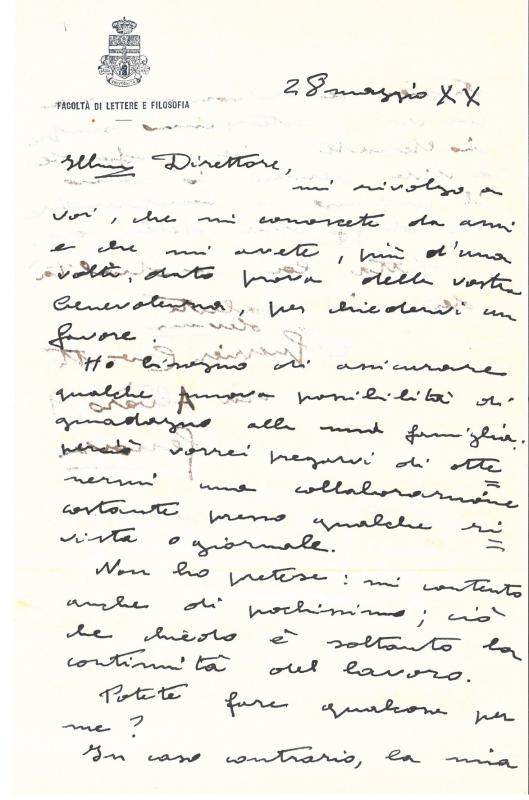 FACOLTÀ DI LETTERE E FILOSOFIA
28 maggio XX
Illmo Direttore,
mi rivolgo a
voi, che mi conoscete da anni
e che mi avete, più d'una
volta, dato prova della vostra
benevolenza, per chiedervi un
favore.
Ho bisogno di assicurare
qualche nuova possibilità di
guadagno alla mia famiglia.
perciò vorrei pregarvi di otte=
nermi una collaborazione
costante presso qualche ri=
vista o giornale.
Non ho pretese: mi contento
anche di pochissimo; ciò
che chiedo è soltanto la
continuità del lavoro.
Potete fare qualcosa per
me?
In caso contrario, la mia